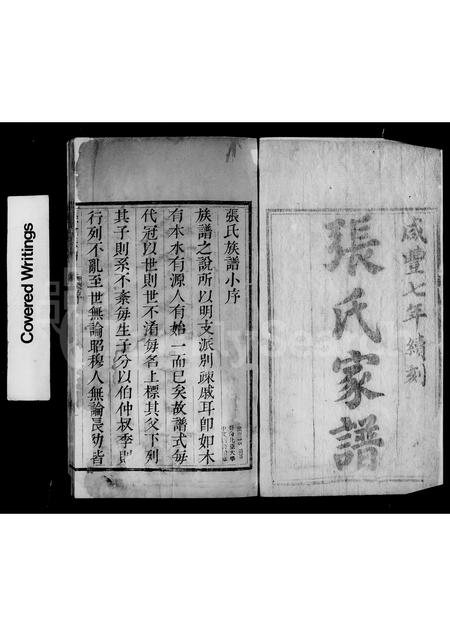 咸豐七年續刻
張氏家譜
張氏族譜小序
族譜之說所以明支派別疎戚耳卽如木
有本水有源人有始一而已矣故譜式每
代冠以世則世不淆每名上標其父下列
其子則系不紊每生子分以伯仲叔季則
行列不亂至世無論昭穆人無論長幼皆
Covered Writings